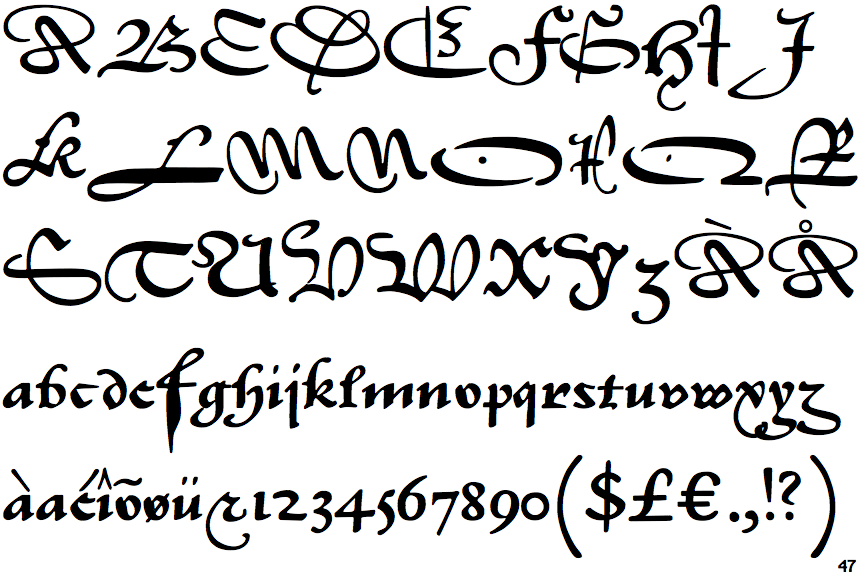 ABCDEFGHIJ
KLMNOPQR
STUVWXYZÀÅ
abcdefghijklmnopqrstuvwxyz
àaéîõøü&1234567890($£€.,!?)
47